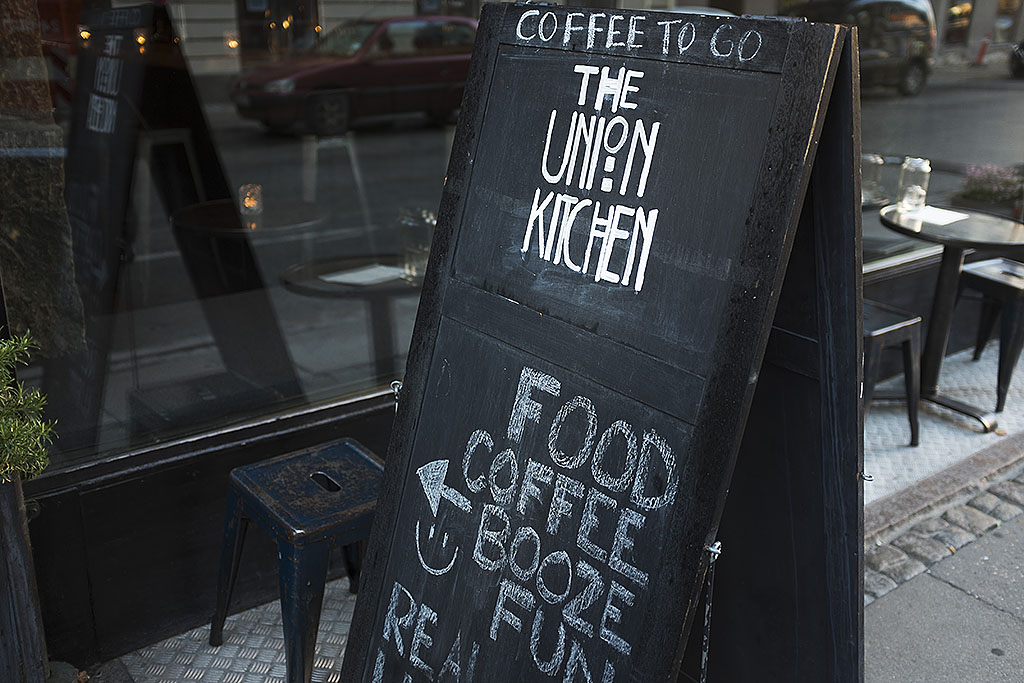 COFFEE TO GO
THE
UNION
KITCHEN
FOOD
COFFEE
BOOZE
FUN